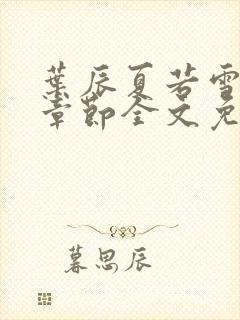 叶辰夏若雪
章节全文免
慕思辰